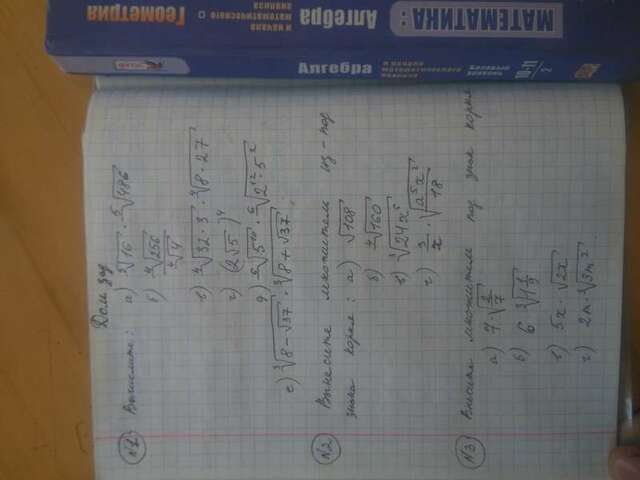 МАТЕМАТИКА:
Алгебра
и начала
математического
анализа
Геометрия
Алгебра
10-11
2
Дом. зад
№1 Вычислите: а) ⁵√16 · ⁵√486
б) ⁴√256 / ⁴√4
в) ⁴√(32 · 3) · ⁴√(8 · 27)
г) (2√5)⁴
д) ⁶√(5¹⁰) · ⁶√(2¹² · 5²)
е) ³√(8 − √37) · ³√(8 + √37)
№2 Вынесите множители из-под
знака корня: а) √108
б) ⁴√160
в) ³√(24x⁵)
г) 3/x · √(a⁵x³/18)
№3 Внесите множители под знак корня
а) 7 · √(2/7)
б) 6 · ³√(1 1/9)
в) 5x · √(2x)
г) 2m · ³√(3m²)